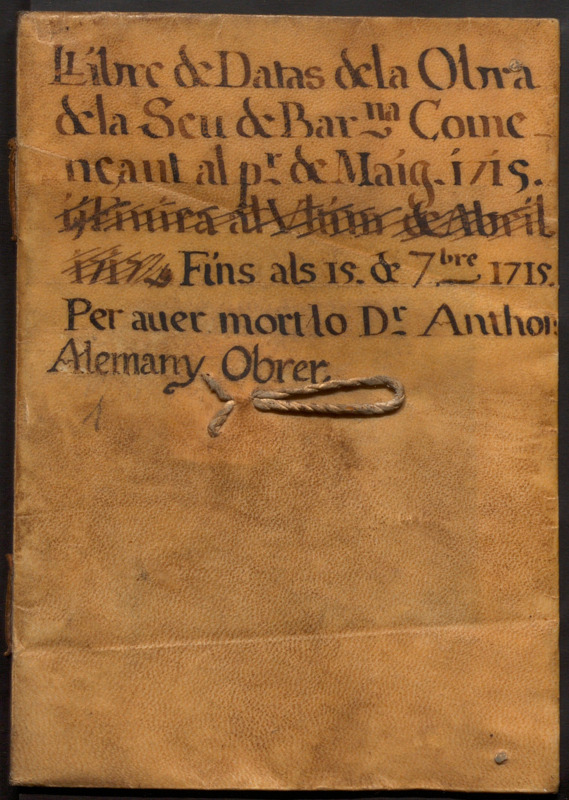 LLibre de Datas dela Obra
dela Seu de Bar.na Come-
nçant al pr. de Maig. 1715.
y finira al Vltim de Abril
Fins als 15. de 7.bre 1715.
Per auer mort lo Dr. Anthon
Alemany. Obrer.
1